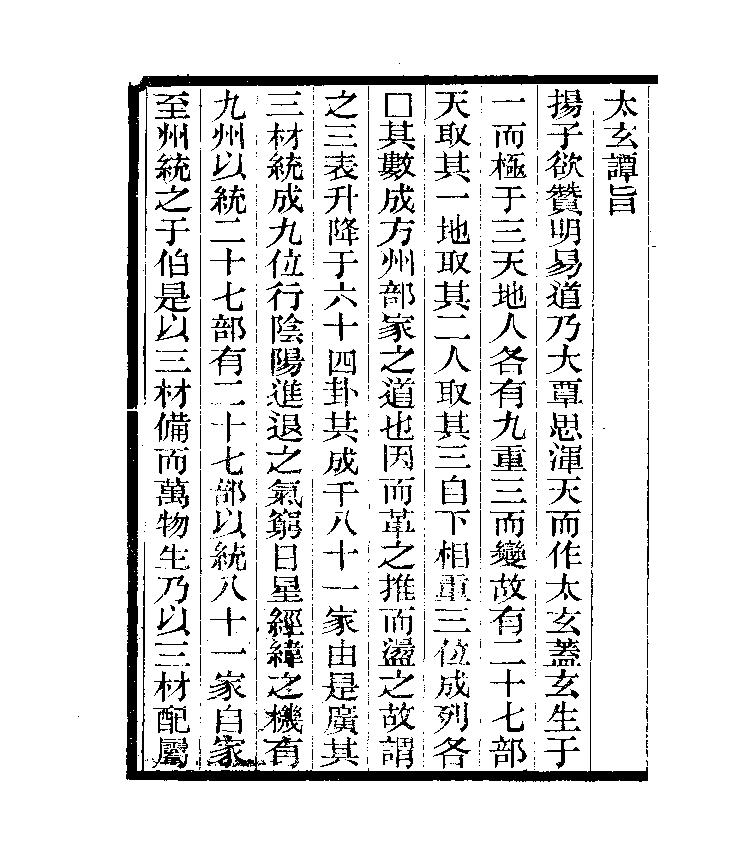 太玄譚旨
揚子欲贊明易道乃大覃思渾天而作太玄蓋玄生于
一而極于三天地人各有九重三而變故有二十七部
天取其一地取其二人取其三自下相重三位成列各
□其數成方州部家之道也因而革之推而盪之故謂
之三表升降于六十四卦其成于八十一家由是廣其
三材統成九位行陰陽進退之氣窮日星經緯之機有
九州以統二十七部有二十七部以統八十一家自家
至州統之于伯是以三材備而萬物生乃以三材配屬